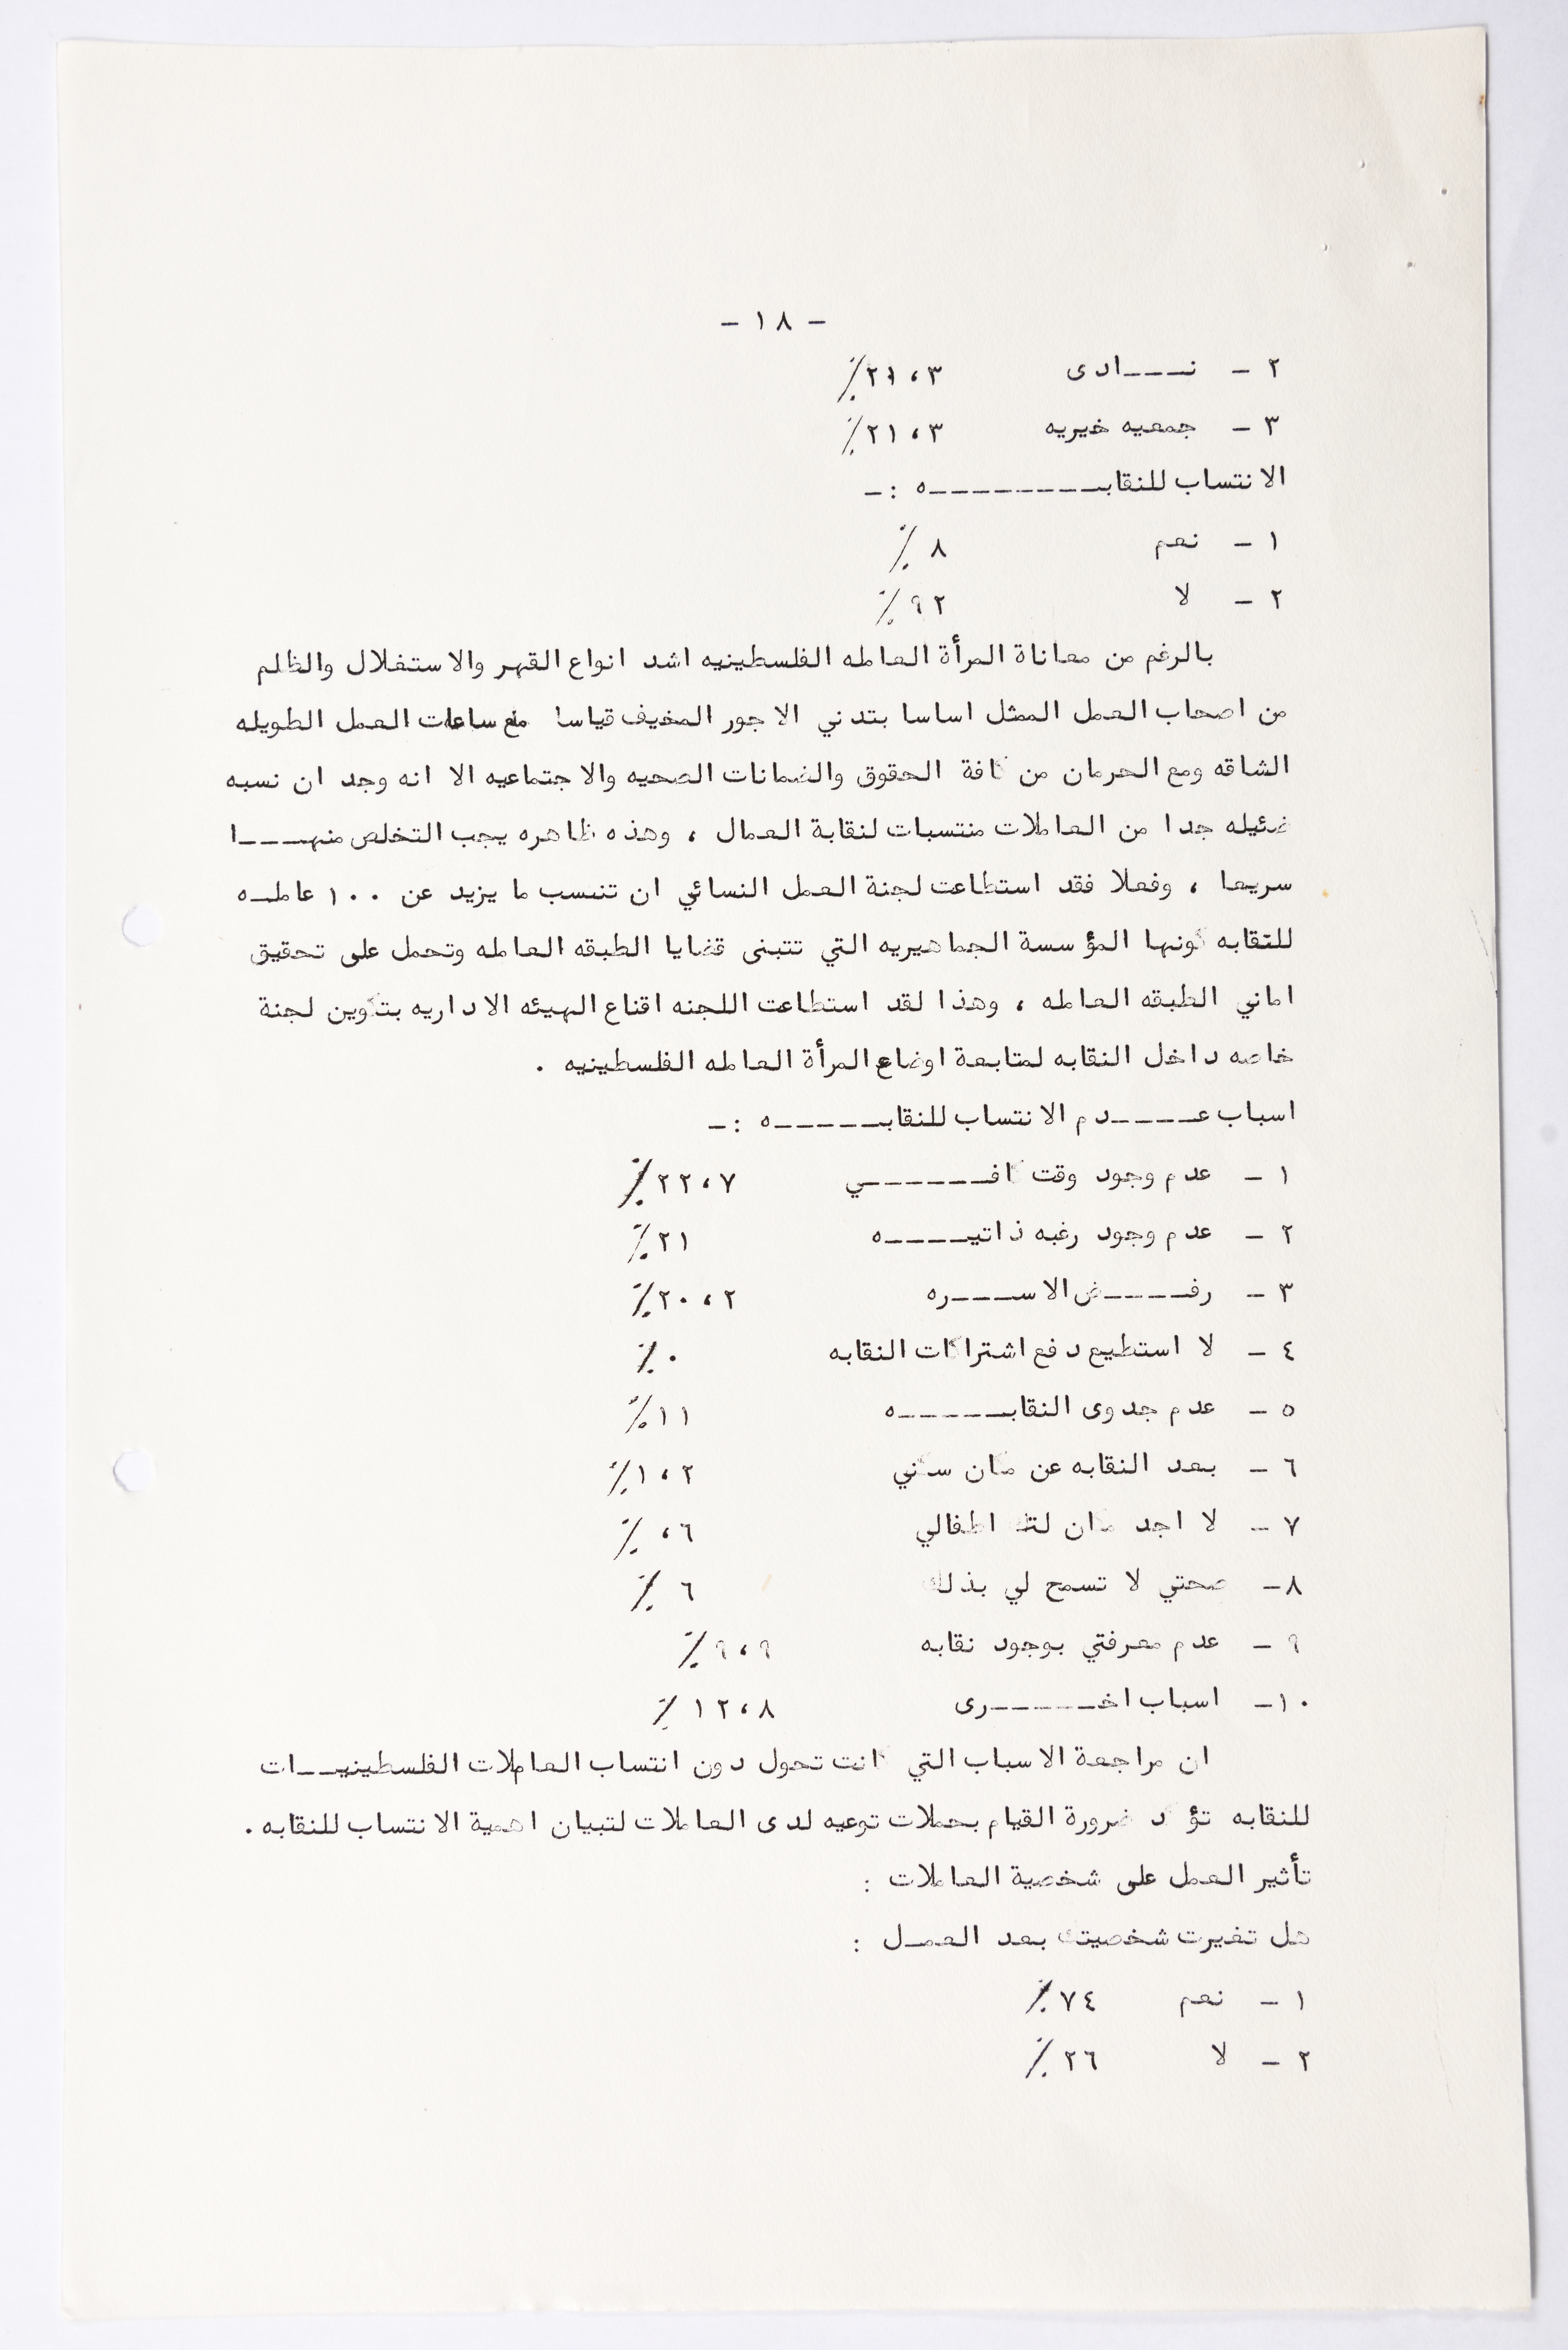 - ١٨ -
٢ - نـــادى ٢١،٣٪
٣ - جمعيه خيريه ٢١،٣٪
الانتساب للنقابـــــــــه :-
١ - نعم ٨ ٪
٢ - لا ٩٢٪
بالرغم من معاناة المرأة العامله الفلسطينيه اشد انواع القهر والاستغلال والظلم
من اصحاب العمل الممثل اساسا بتدني الاجور المخيف قياسا مع ساعات العمل الطويله
الشاقه ومع الحرمان من كافة الحقوق والضمانات الصحيه والاجتماعيه الا انه وجد ان نسبه
ضئيله جدا من العاملات منتسبات لنقابة العمال ، وهذه ظاهره يجب التخلص منهــــا
سريعا ، وفعلا فقد استطاعت لجنة العمل النسائي ان تنسب ما يزيد عن ١٠٠ عاملــه
للنقابه كونها المؤسسة الجماهيريه التي تتبنى قضايا الطبقه العامله وتعمل على تحقيق
اماني الطبقه العامله ، وهذا لقد استطاعت اللجنه اقناع الهيئه الاداريه بتكوين لجنة
خاصه داخل النقابه لمتابعة اوضاع المرأة العامله الفلسطينيه .
اسباب عـــــدم الانتساب للنقابــــــه :-
١ - عدم وجود وقت كافـــــــي ٢٢،٧٪
٢ - عدم وجود رغبه ذاتيـــــه ٢١٪
٣ - رفـــــض الاســــره ٢٠،٢٪
٤ - لا استطيع دفع اشتراكات النقابه ٠٪
٥ - عدم جدوى النقابــــــه ١١٪
٦ - بعد النقابه عن مكان سكني ١،٢٪
٧ - لا اجد مكان لترك اطفالي ،٦ ٪
٨- صحتي لا تسمح لي بذلك ٦ ٪
٩ - عدم معرفتي بوجود نقابه ٩،٩٪
١٠- اسباب اخـــــــرى ١٢،٨ ٪
ان مراجعة الاسباب التي كانت تحول دون انتساب العاملات الفلسطينيـــات
للنقابه تؤكد ضرورة القيام بحملات توعيه لدى العاملات لتبيان اهمية الانتساب للنقابه .
تأثير العمل على شخصية العاملات :
هل تغيرت شخصيتك بعد العمــل :
١ - نعم ٧٤٪
٢ - لا ٢٦٪